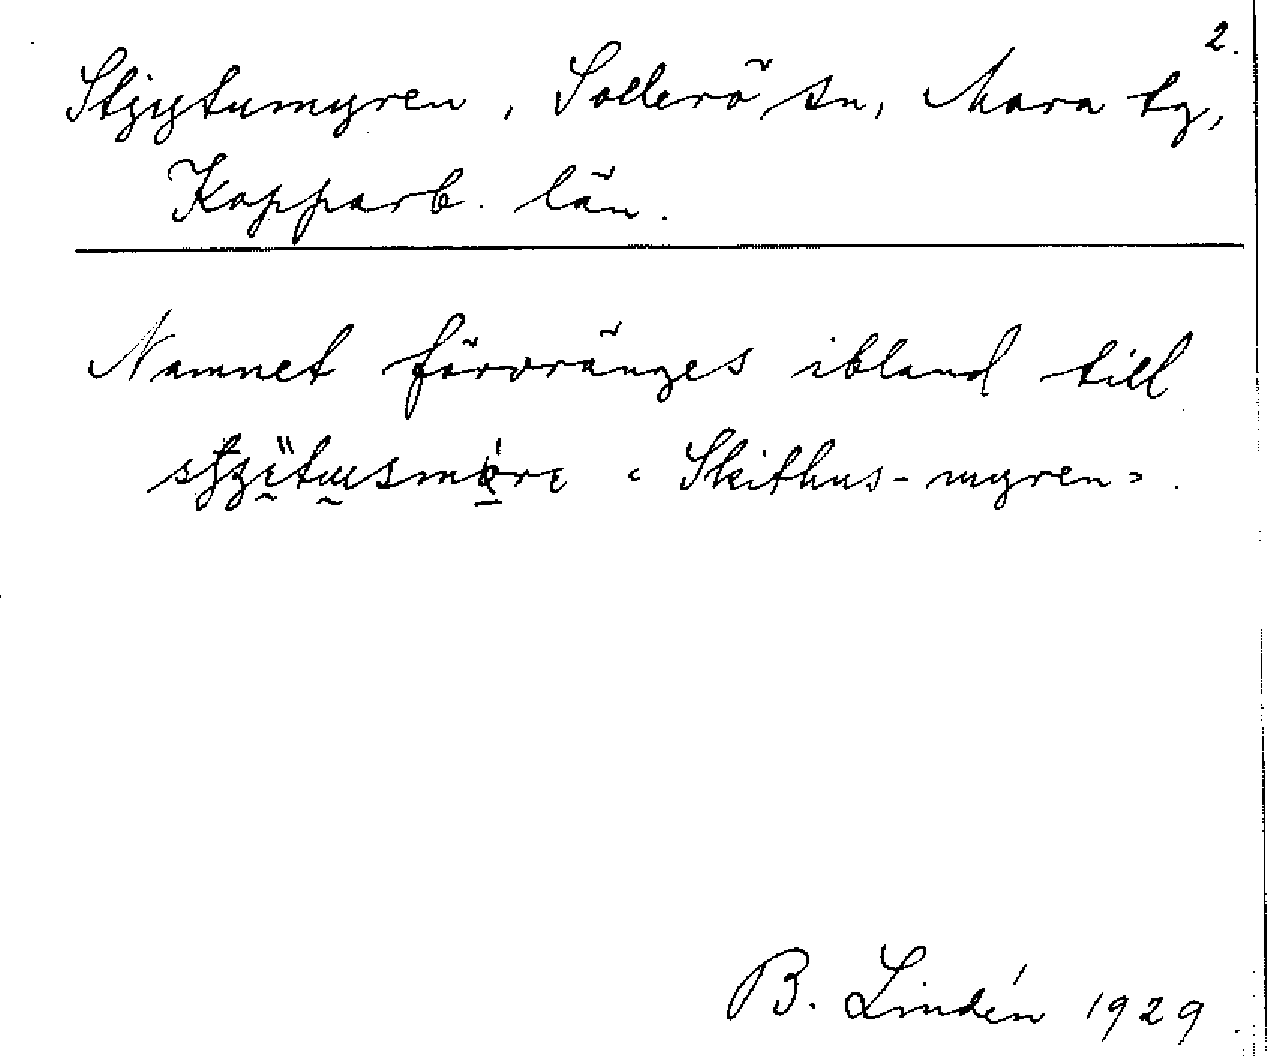 2.
Stjytumyren, Sollerö sn, Mora tg,
Kopparb. län.
Namnet förvränges ibland till
"Skithus-myren".
B. Lindén 1929